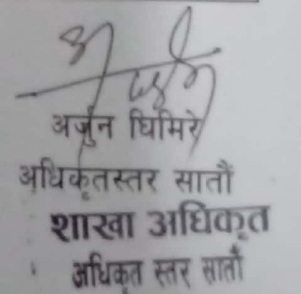 अर्जुन घिमिरे
अधिकृतस्तर सातौं
शाखा अधिकृत
अधिकृत स्तर सातौं